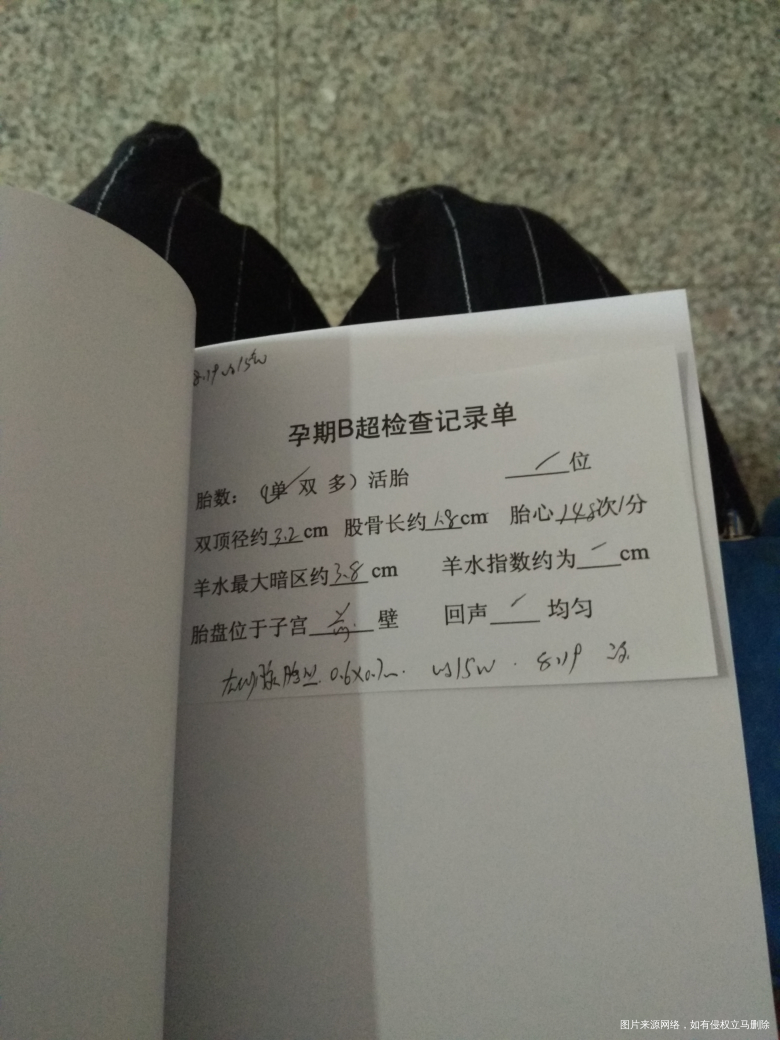 8.19 us15w
孕期B超检查记录单
胎数：（单 双 多）活胎 位
双顶径约3.2cm 股骨长约1.8cm 胎心148次/分
羊水最大暗区约3.8cm 羊水指数约为 cm
胎盘位于子宫 前 壁 回声 均匀
0.6×0.7 us15w. 8.19
图片来源网络，如有侵权立马删除